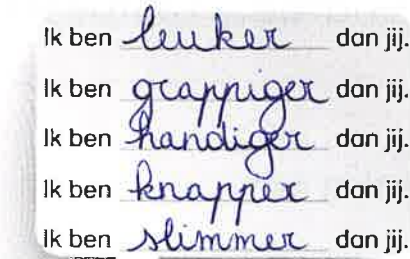 Ik ben leuker dan jij.
Ik ben grappiger dan jij.
Ik ben handiger dan jij.
Ik ben knapper dan jij.
Ik ben slimmer dan jij.